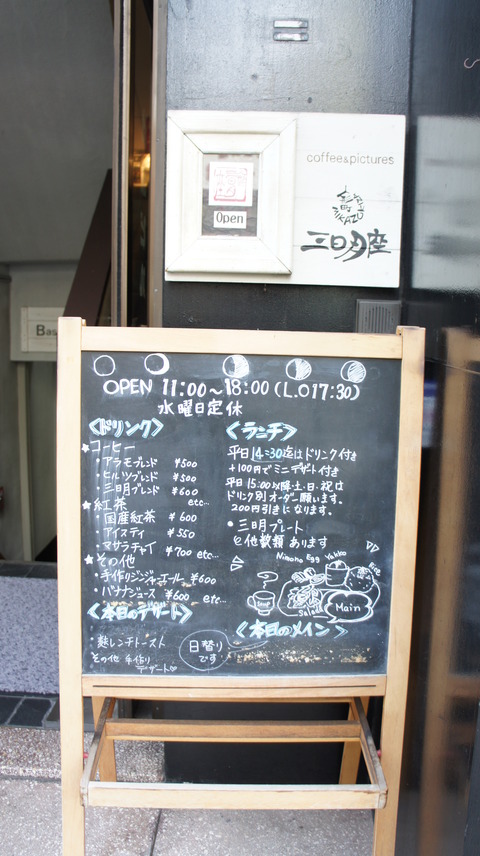 coffee&pictures
三日月座
Open
Bas
OPEN 11:00〜18:00 (L.O 17:30)
水曜日定休
<ドリンク>
コーヒー
・アラモブレンド ¥500
・ヒルツブレンド ¥500
・三日月ブレンド ¥600
etc...
★紅茶
・国産紅茶 ¥600
・アイスティ ¥550
・マサラチャイ ¥700 etc...
★その他
・手作りジンジャエール ¥600
・バナナジュース ¥600 etc...
<本日のデザート>
・麩レンチトースト
その他 手作り
デザート♡
日替り
です
<ランチ>
平日14:30迄はドリンク付き
+100円でミニデザート付き
平日15:00以降、土・日・祝は
ドリンク別オーダー願います。
200円引きになります。
・三日月プレート
と他数類あります
Nimono Egg Yakko
Rice
Soup
Salad
Main
<本日のメイン>